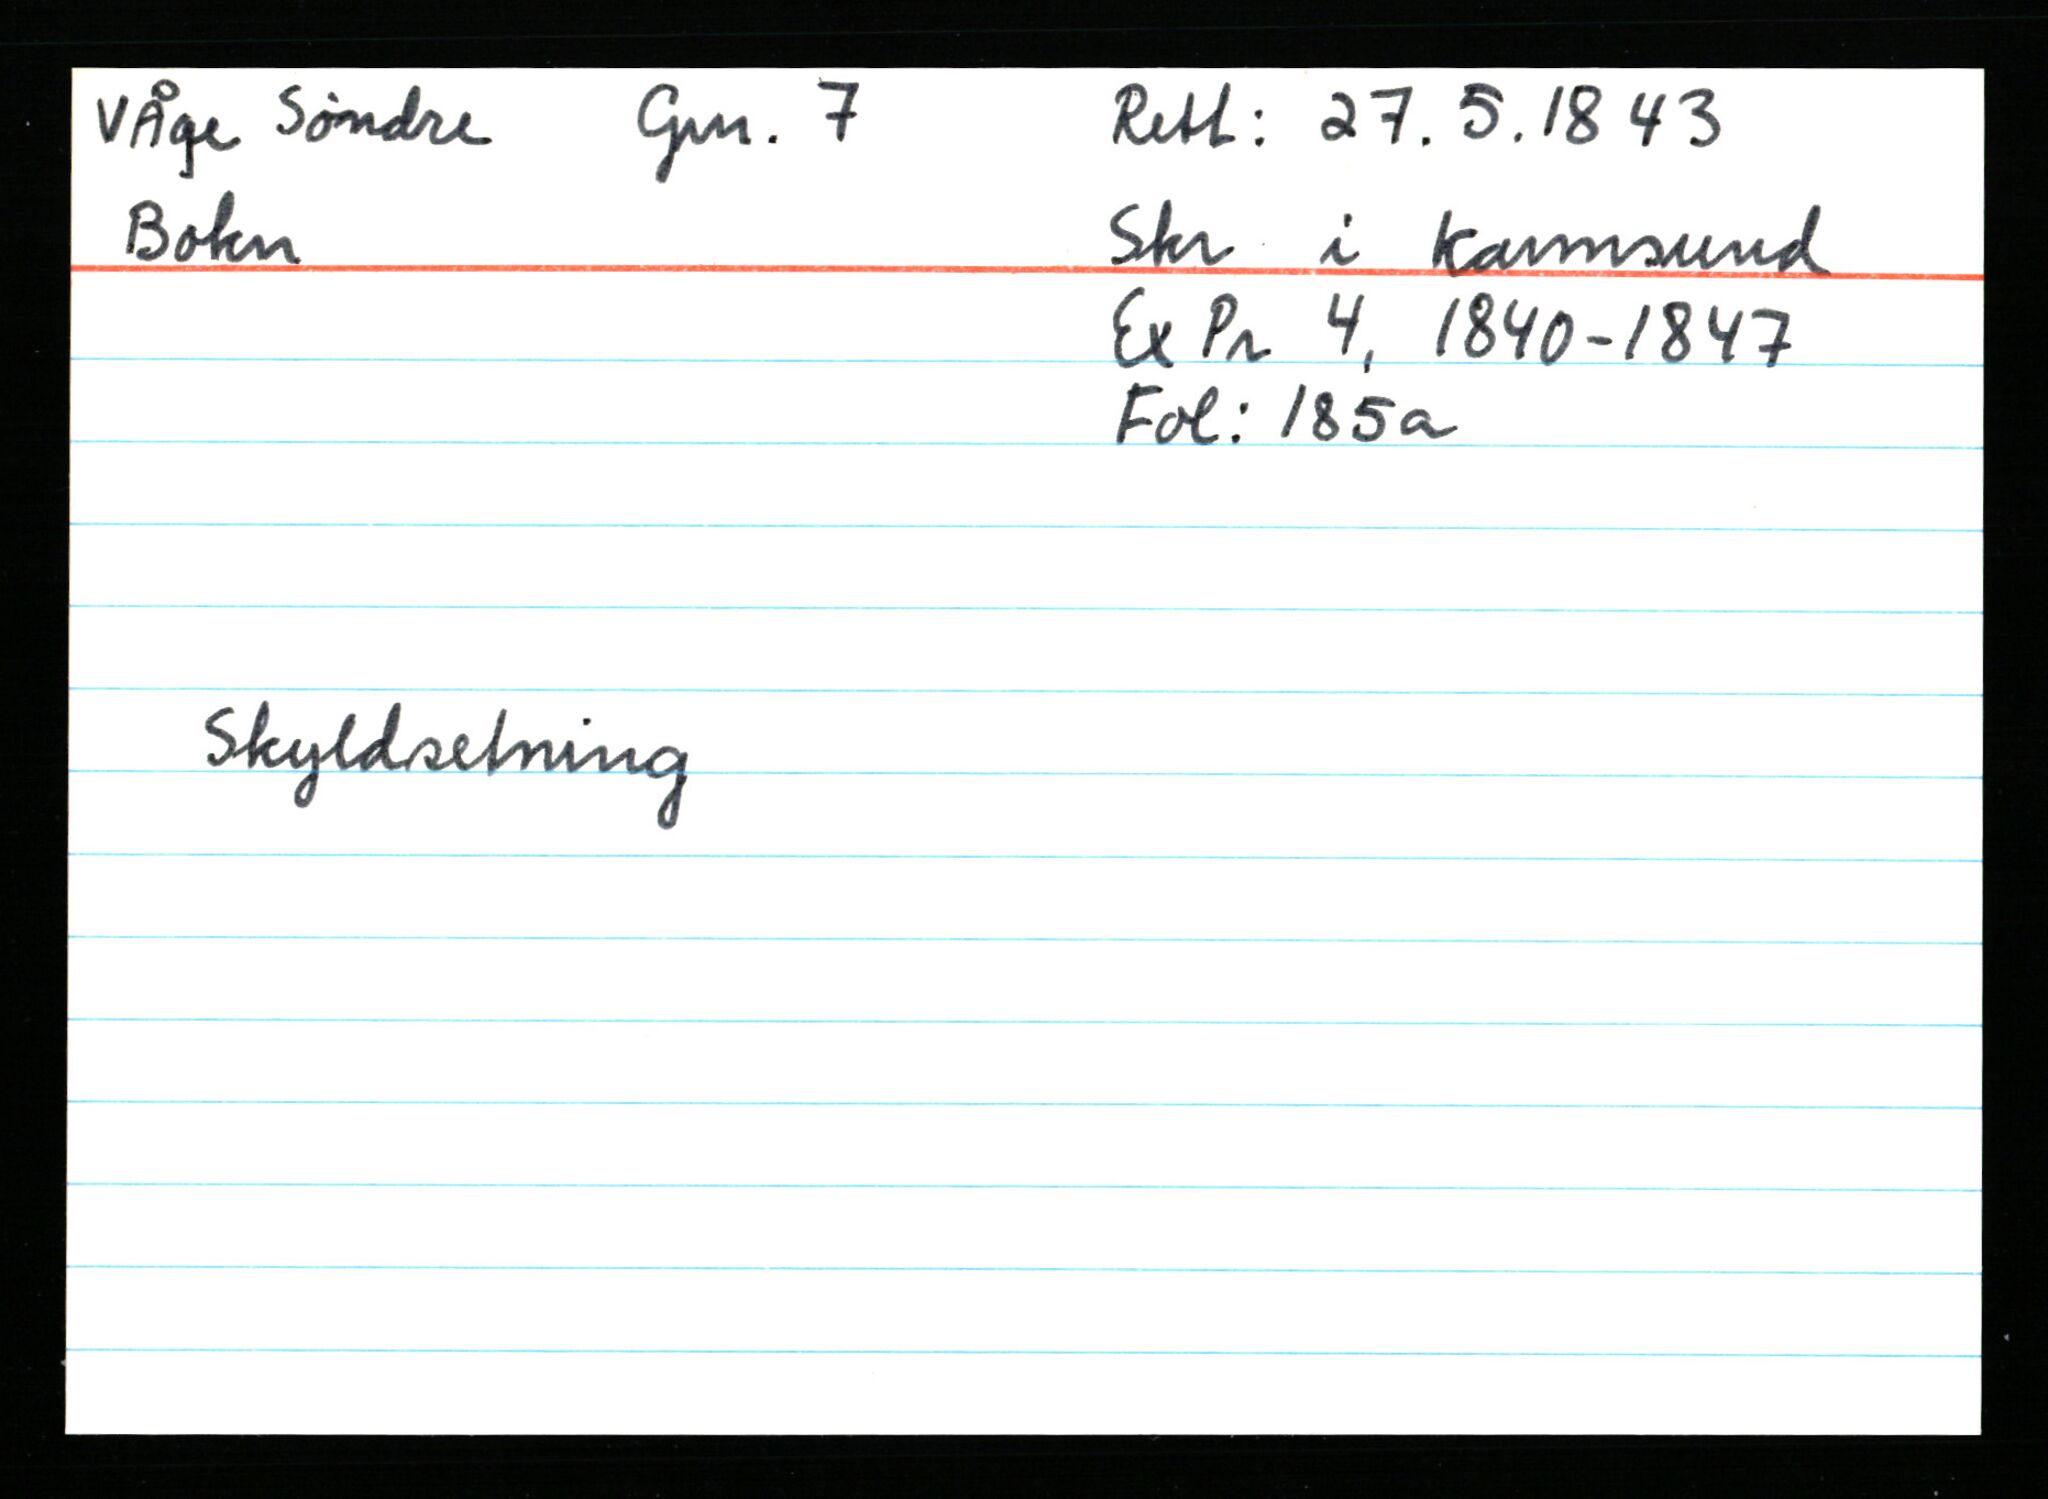 VÅge Söndre Gnr. 7 Rett: 27.5.1843
Bokn Skr i Karmsund
Ex Pr 4, 1840-1847
Fol: 185a
Skyldsetning